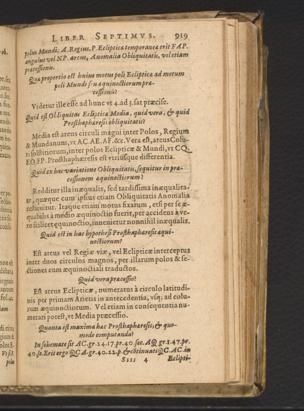 LIBER SEPTIMVS. 919
polus Mundi; A. Regius, P. Eclipticæ temporanea erit F A P.
angulus vel N P. arcus, Anomalia Obliquitatis, vel etiam
præcessionis.
Quæ proportio est huius motus poli Eclipticæ ad motum
poli Mundi seu æquinoctiorum præ-
cessionis?
Videtur ille esse ad hunc vt 4. ad 3. fat præcise.
Quid est Obliquitas Eclipticæ Media, quid vera, & quid
Prosthaphæresis obliquitatis?
Media est arcus circuli magni inter Polos, Regium
& Mundanum, vt AC. AE. AF. &c. Vera est, arcus Colu-
ri solstitiorum, inter polos Eclipticæ & Mundi, vt CQ.
EO. FP. Prosthaphæresis est vtriusque differentia.
Quid ex hac variatione Obliquitatis, sequitur in præ-
cessionem æquinoctiorum?
Redditur illa inæqualis, sed tardissima inæqualita-
te, quæque cum ipsius etiam Obliquitatis Anomalia
restituitur. Itaque etiam motus fixarum, etsi per se æ-
quabilis à medio æquinoctio fuerit, per accidens à ve-
ro scilicet æquinoctio, inuenietur nonnihil inæqualis.
Quid est in hac hypothesi Prosthaphæresis æqui-
noctiorum?
Est arcus vel Regiæ viæ, vel Eclipticæ interceptus
inter duos circulos magnos, per illarum polos & se-
ctiones cum æquinoctiali traductos.
Quid vera præcessio?
Est arcus Eclipticæ, numeratus à circulo latitudi-
nis per primam Arietis in antecedentia, vsq; ad colu-
rum æquinoctiorum. Vel etiam in consequentia nu-
merari potest, vt Media præcessio.
Quanta est maxima hæc Prosthaphæresis; & quo-
modo computanda?
In schemate sit AC. gr. 24. 17. pr. 40 sec. AQ gr. 1. 47. pr.
40. se. Erit ergo QCA. gr. 40. 22. p. & continuatis QC. AC. in
Sss 4 Eclipti-